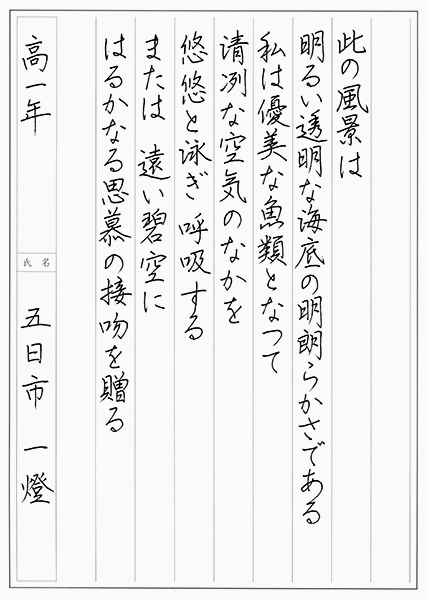 此の風景は
明るい透明な海底の明朗らかさである
私は優美な魚類となつて
清冽な空気のなかを
悠悠と泳ぎ呼吸する
または 遠い碧空に
はるかなる思慕の接吻を贈る
高一年
氏名
五日市 一燈